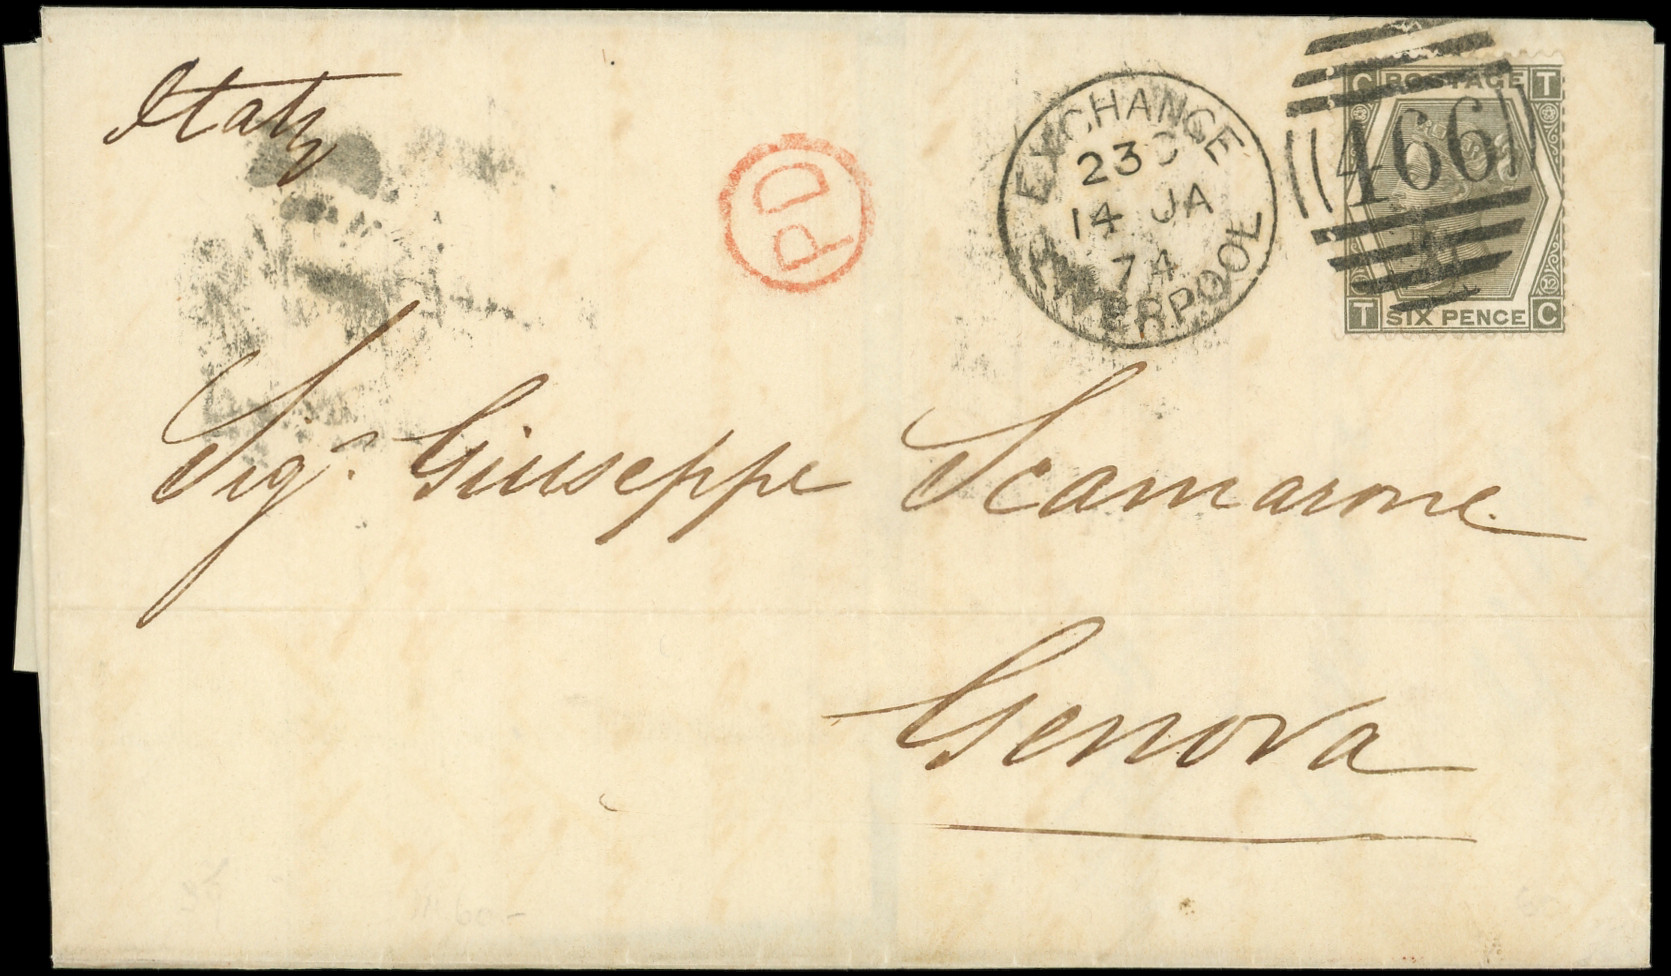 Italy
PD
EXCHANGE
23 C
14 JA
74
LIVERPOOL
466
C POSTAGE T
12 12
T SIX PENCE C
Sigr. Giuseppe Scamarone
Genova